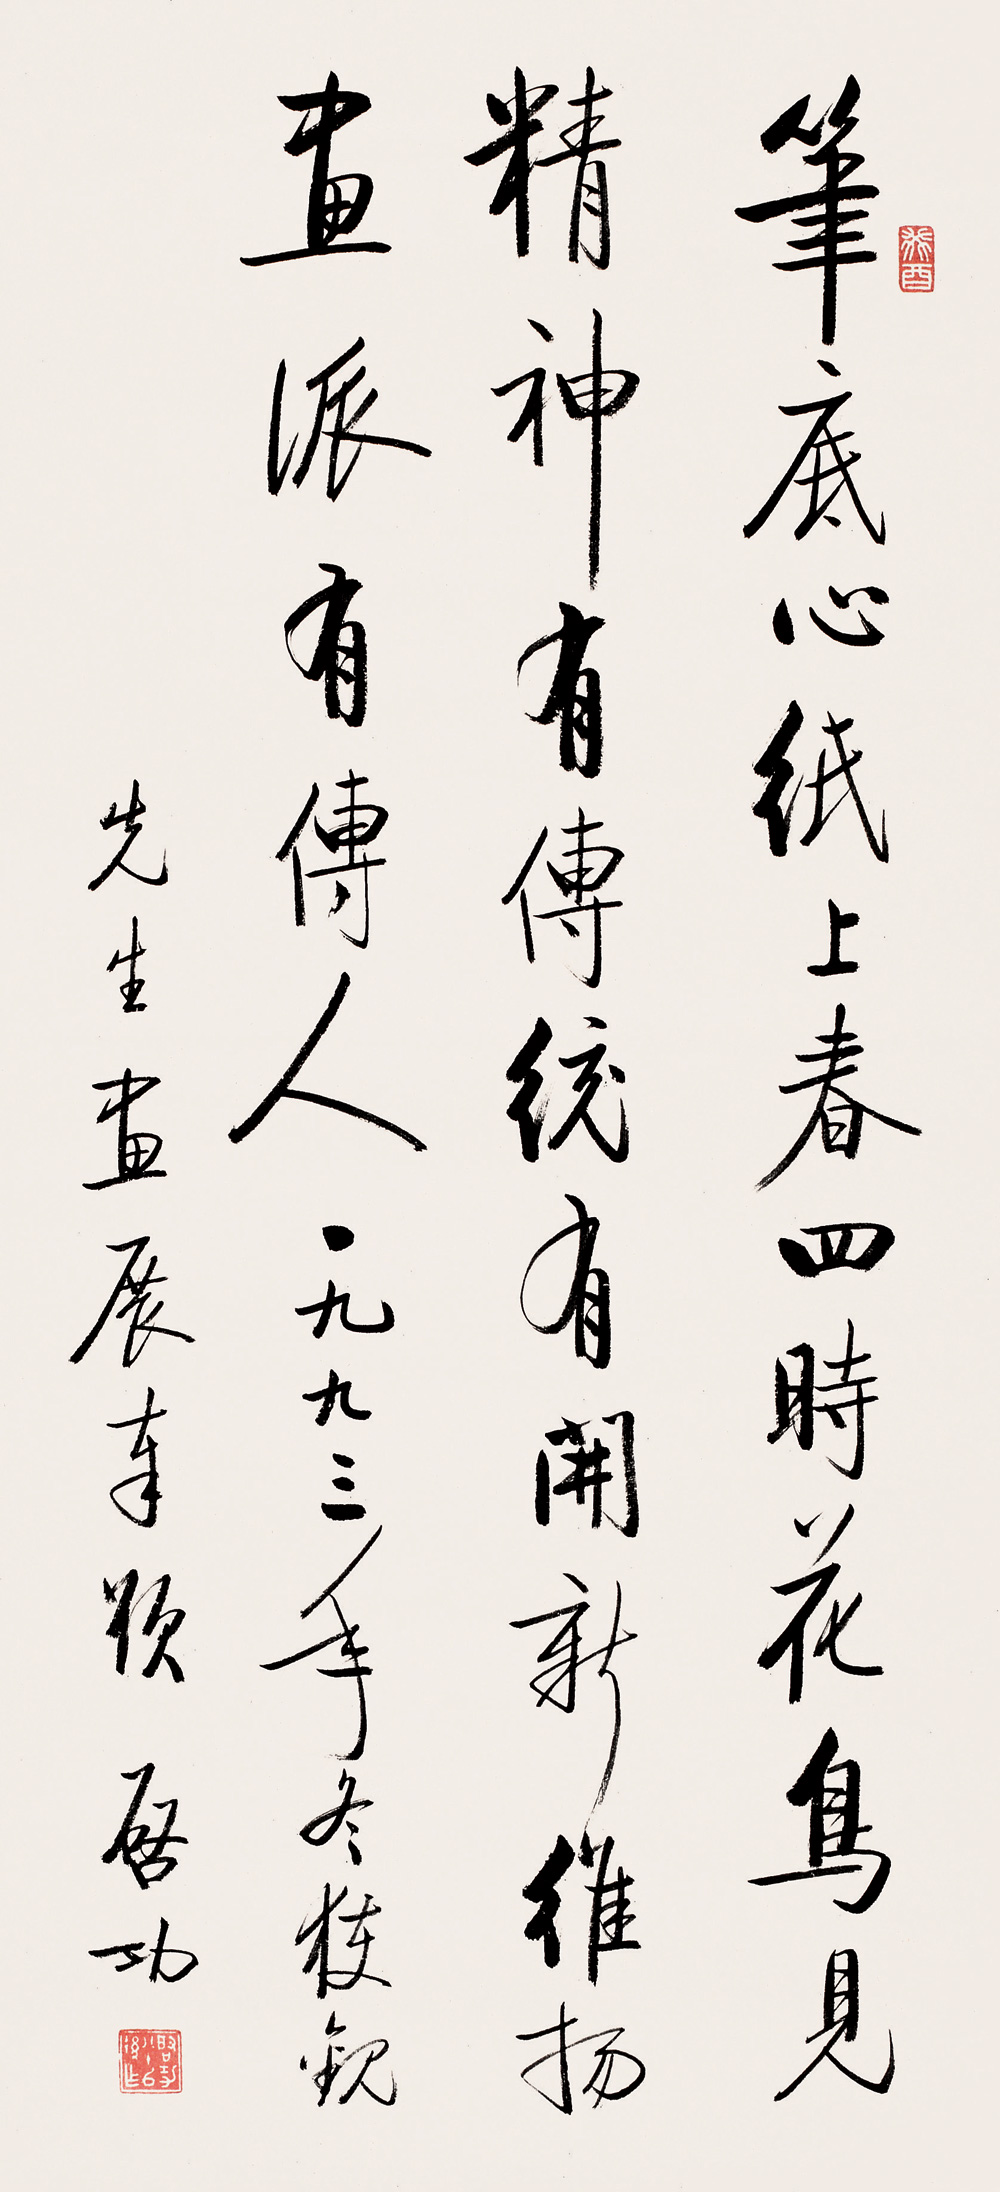 癸酉
筆底心紙上春四時花鳥見
精神有傳統有開新維扬
畫派有傳人 一九九三年冬獲觀
先生畫展奉頌 啓功